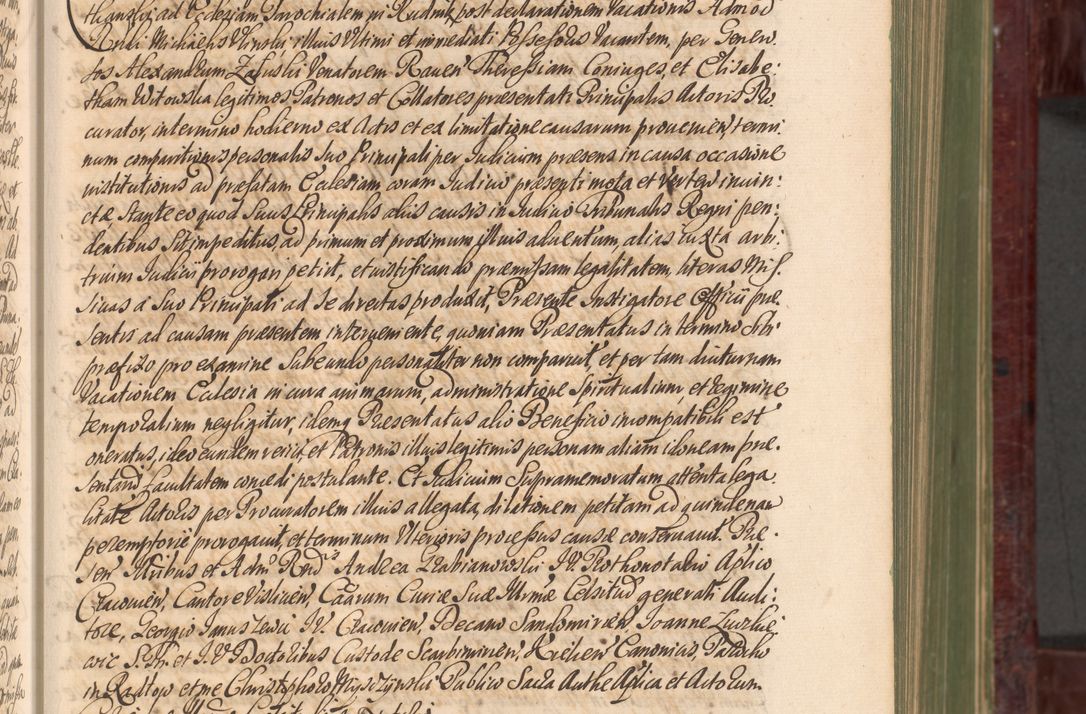 ad Ecclesiam Parochialem in Rudnik post declarationem Vacationis Adm od
Rndi Michaelis illius Ultimi et immediati Possessoris Vacantem, per Genero
sos Alexandrum Załuski Venatorem Raven Theressiam Coniuges, et Elisabe:
tham Witowska legitimos Patronos et Collatores præsentati Principalis Actoris Pro
curator, in termino hodierno ex Actis et ex limitatione causarum provenien termi
num comparitionis personalis suo Principali per Judicium præsens in causa occasione
institutionis ad præfatam Ecclesiam coram Judicio præsenti mota et verten iniun:
ctæ stante eo quod Suus Principalis aliis causis in Judicio Tribunalis Regni pen:
dentibus Sit impeditus, ad primum et proximum illius adventum, alias iuxta arbi:
trium Judicii prorogari petiit, et iustificando præmissam legalitatem, literas Mis
sivas a Suo Principali ad se directas produxit, Præsente Instigatore Officii præ
sentis ad causam præsentem interveniente, quoniam Præsentatus in termino Sibi
præfixo pro examine Subeundo personaliter non comparuit, et per tam diuturnam
Vacationem Ecclesia in cura animarum, administratione Spiritualium, et regimine
temporalium negligitur, idemq Præsentatus alio Beneficio incompatibili est
oneratus, ideo eundem reiici, et Patronis illius legitimis personam aliam idoneam præ
sentandi facultatem concedi postulante. Et Judicium Supramemoratum attenta lega
litate Actoris per Procuratorem illius allegata, dilationem petitam ad quindenam
peremptorie prorogavit, et terminum Ulterioris processus causæ conservavit. Præ
sen Illribus et Adm Rndis Andrea Zrabianowski J.V. Prothonotario Aplico
Cracovien, Cantore Vislicien, Caarum Curiæ Suæ Illrmæ Celsitud generali Audi:
tore, Georgio Januszewic J.V. Cracovien, Decano Sandomirien, Joanne
S. Th. et J.V. Doctoribus Custode Scarbimirien, Kielcien Canonicis, Parocho
in Radłow et me Christophoro Publico Sacra Authe Aplica et Actorum